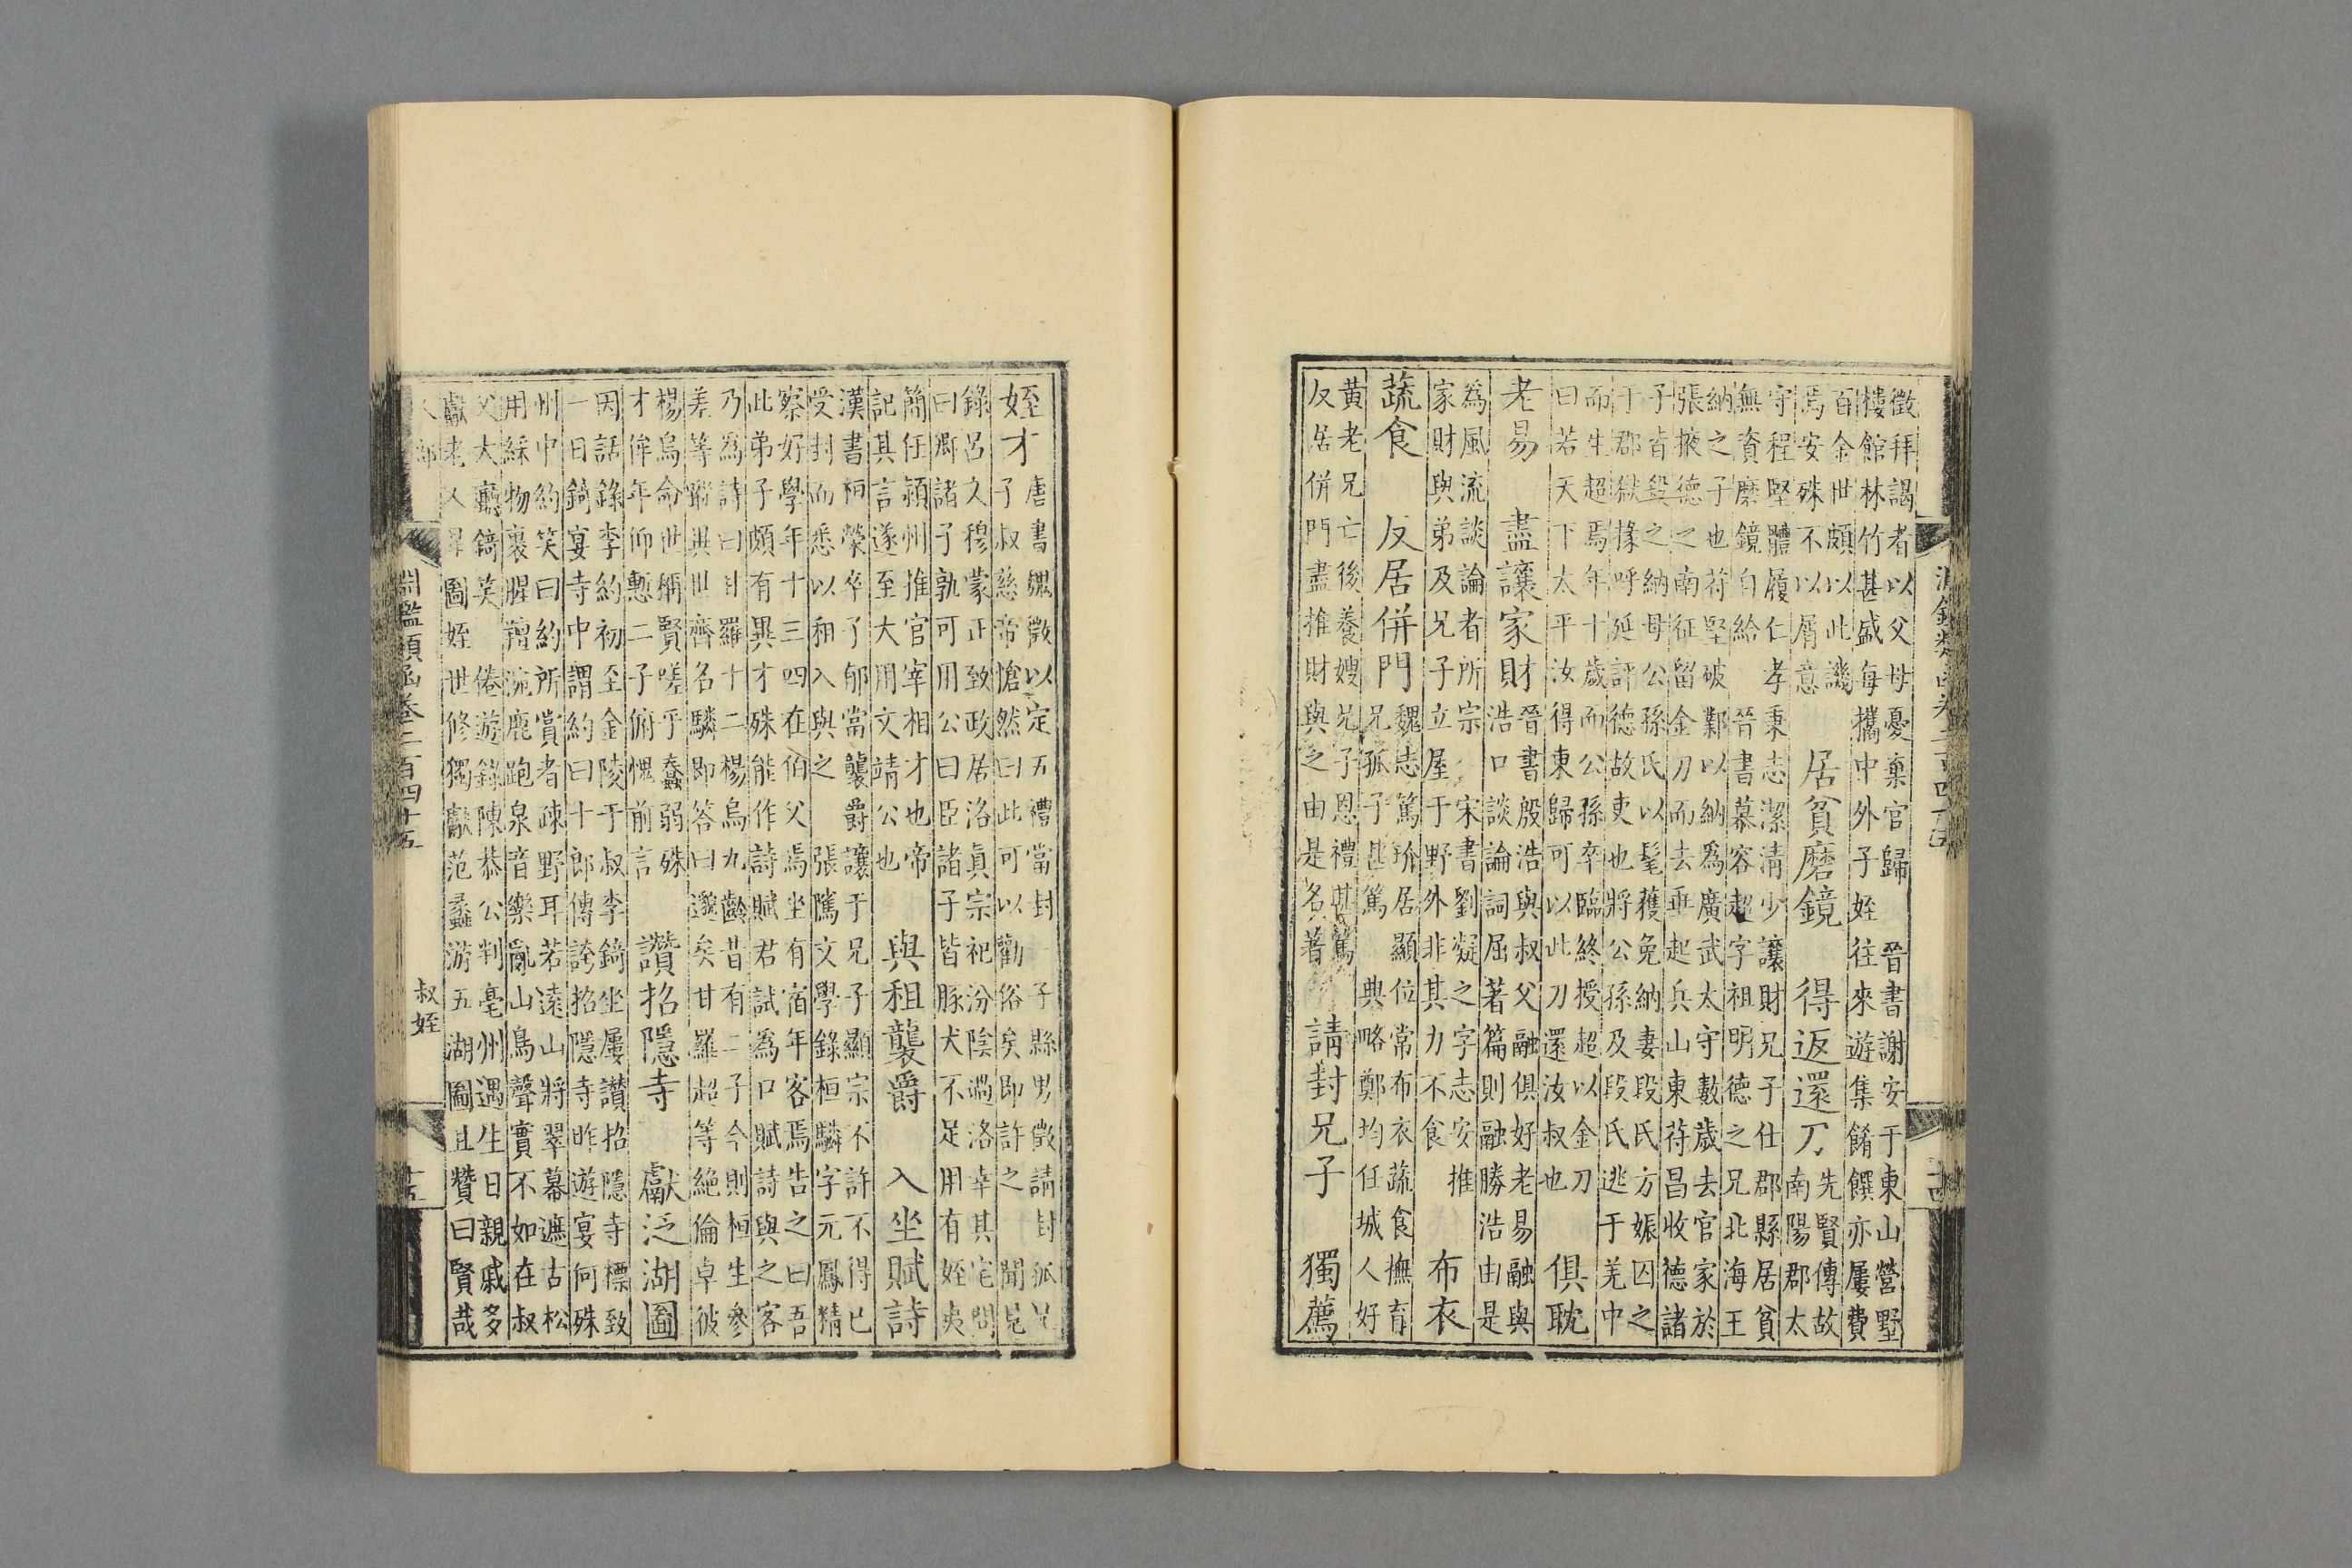 徵拜謁者以父母憂棄官歸 晉書謝安于東山營墅
樓館林竹甚盛每攜中外子姪往來遊集餚饌亦屢費
百金世頗以此譏
焉安殊不以屑意
居貧磨鏡 得返還刀
先賢傳故
南陽郡太
守程堅體履仁孝秉志潔清少讓財兄子仕郡縣居貧
無資磨鏡自給 晉書慕容超字祖明德之兄北海王
納之子也苻堅破鄴以納爲廣武太守數歲去官家於
張掖德之南征留金刀而去垂起兵山東苻昌收德諸
子皆殺之納母公孫氏以耄獲免納妻段氏方娠囚之
于郡獄掾呼延評德故吏也將公孫及段氏逃于羌中
而生超焉年十歲而公孫卒臨終授超以金刀
曰若天下太平汝得東歸可以此刀還汝叔也
俱耽
老易 盡讓家財
晉書殷浩與叔父融俱好老易融與
浩口談論詞屈著篇則融勝浩由是
爲風流談論者所宗 宋書劉凝之字志安推
家財與弟及兄子立屋于野外非其力不食
布衣
蔬食 反居併門
魏志篤玠居顯位常布衣蔬食撫育
兄孤子甚篤 典略鄭均任城人好
黃老兄亡後養嫂兄子恩禮甚篤
反居併門盡推財與之由是名著
請封兄子 獨薦
十四
姪才
唐書魏徵以定五禮當封一子縣男徵請封孤兄
子叔慈帝愴然曰此可以勸俗矣即許之 聞見
錄呂文穆蒙正致政居洛真宗祀汾陰過洛幸其宅問
曰卿諸子孰可用公曰臣諸子皆豚犬不足用有姪夷
簡任潁州推官宰相才也帝
記其言遂至大用文靖公也
與租襲爵 入坐賦詩
漢書桓榮卒子郁當襲爵讓于兄子顯宗不許不得已
受封而悉以租入與之 張隲文學錄桓驎字元鳳精
察好學年十三四在伯父焉坐有宿年客焉告之曰吾
此弟子頗有異才殊能作詩賦君試爲口賦詩與之客
乃爲詩曰甘羅十二楊烏九齡昔有二子今則桓生參
差等蹤異世齊名驎即答曰邈矣甘羅超等絶倫卓彼
楊烏命世稱賢嗟乎蠢弱殊
才侔年仰慙二子俯愧前言
讚招隱寺 獻泛湖圖
因話錄李約初至金陵于叔李錡坐屢讚招隱寺標致
一日錡宴寺中謂約曰十郎傳誇招隱寺昨遊宴何殊
州中約笑曰約所賞者疎野耳若遠山將翠幕遮古松
用綵物裹腥羶涴鹿跑泉音樂亂山鳥聲實不如在叔
父大廳錡笑 倦遊錄陳恭公判亳州遇生日親戚多
獻老人星圖姪世修獨獻范蠡游五湖圖且贊曰賢哉
淵鑑類函卷二百四十五 叔姪 十五